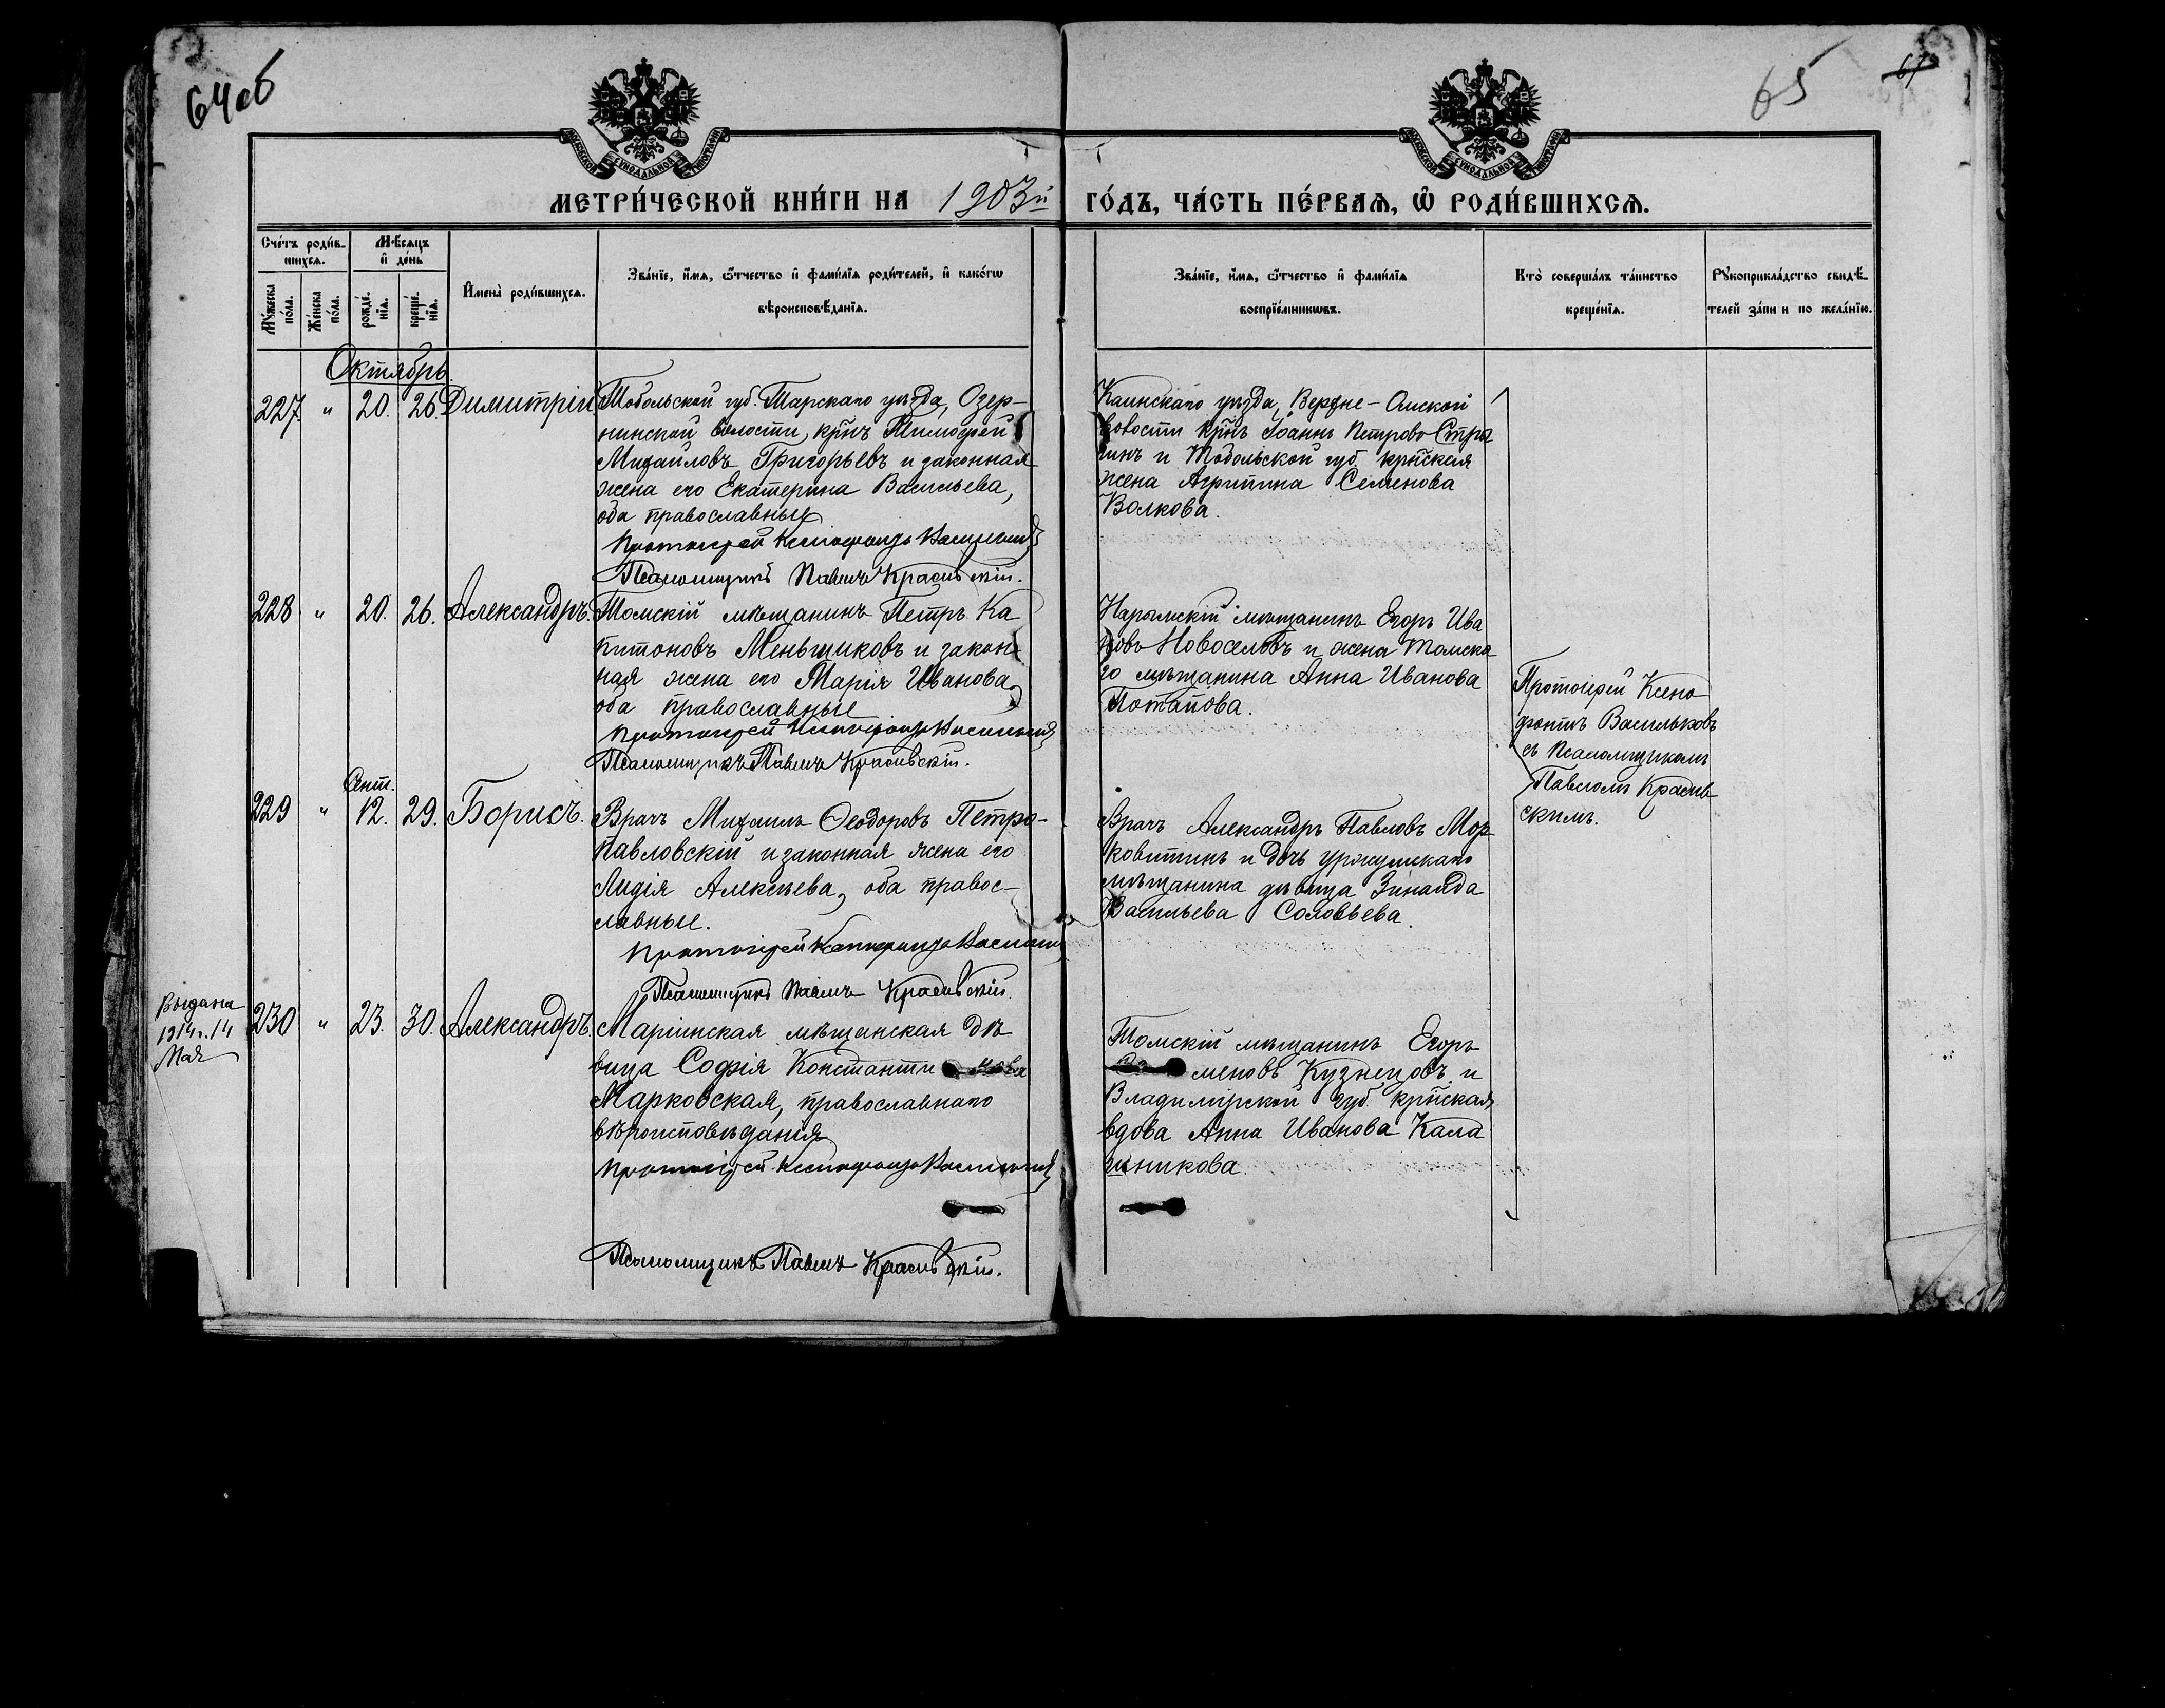 64об
65
67
МОСКОВСКОЙ СѴНОДАЛЬНОЙ ТИПОГРАФІИ
МОСКОВСКОЙ СѴНОДАЛЬНОЙ ТИПОГРАФІИ
МЕТРИ́ЧЕСКОЙ КНИ́ГИ НА 1903й ГО́ДЪ, ЧА́СТЬ ПЕ́РВАѦ, Ѡ҆ РОДИ́ВШИХСѦ.
Сче́тъ роди́в-
шихсѧ.
Мꙋ́жеска
по́ла.
Же́нска
по́ла.
Мѣ́сѧцъ
и҆ де́нь
рожде́-
нїѧ.
креще́-
нїѧ.
И҆мена̀ роди́вшихсѧ.
Зва́нїе, и҆́мѧ, ѻ҆́тчество и҆ фами́лїѧ роди́телей, и҆ како́гѡ
вѣроисповѣ́данїѧ.
Зва́нїе, и҆́мѧ, ѻ҆́тчество и҆ фами́лїѧ
воспрїе́мникѡвъ.
Кто̀ соверша́лъ та́инство
креще́нїѧ.
Рꙋкоприкла́дство свидѣ́-
телей за́пи и по жела́нїю.
Октябрь.
227. " 20. 26. Димитрій
Тобольской губ. Тарскаго уѣзда, Озер-
нинской волости, крнъ Тимофей
Михайловъ Григорьевъ и законная
жена его Екатерина Васильева,
оба православные
Протоіерей Ксенофонтъ Васильковъ
Псаломщикъ Павелъ Красивскій.
Каинскаго уѣзда, Верхне-Омской
волости крнъ Іоаннъ Петровъ Стра
шнъ и Тобольской губ. крнская
жена Агрипина Семенова
Волкова.
228 " 20. 26. Александръ.
Томскій мѣщанинъ Петръ Ка
питоновъ Меньщиковъ и закон-
ная жена его Марія Иванова,
оба православные
Протоіерей Ксенофонтъ Васильковъ
Псаломщикъ Павелъ Красивскій.
Нарымскій мѣщанинъ Егоръ Ива
новъ Новоселовъ и жена Томска
го мѣщанина Анна Иванова
Потапова.
Сент.
229 " 12. 29. Борисъ.
Врачъ Михаилъ Ѳеодоровъ Петро-
павловскій и законная жена его
Лидія Алексѣева, оба правос-
лавные.
Протоіерей Ксенофонтъ Васильковъ
Псаломщикъ Павелъ Красивскій.
Врачъ Александръ Павловъ Мор-
ковитинъ и дочь
мѣщанина дѣвица Зинаида
Васильева Соловьева.
Выдана
1914г. 14
Мая
230 " 23. 30. Александръ.
Маріинская мѣщанская дѣ
вица Софія Константинова
Марковская, православнаго
вѣроисповѣданія
Протоіерей Ксенофонтъ Васильковъ
Псаломщикъ Павелъ Красивскій.
Томскій мѣщанинъ Егоръ
меновъ Кузнецовъ и
Владимірской губ. крнская
вдова Анна Иванова Кала
шникова.
Протоіерей Ксено
фонтъ Васильковъ
съ псаломщикомъ
Павломъ Красив-
скимъ.